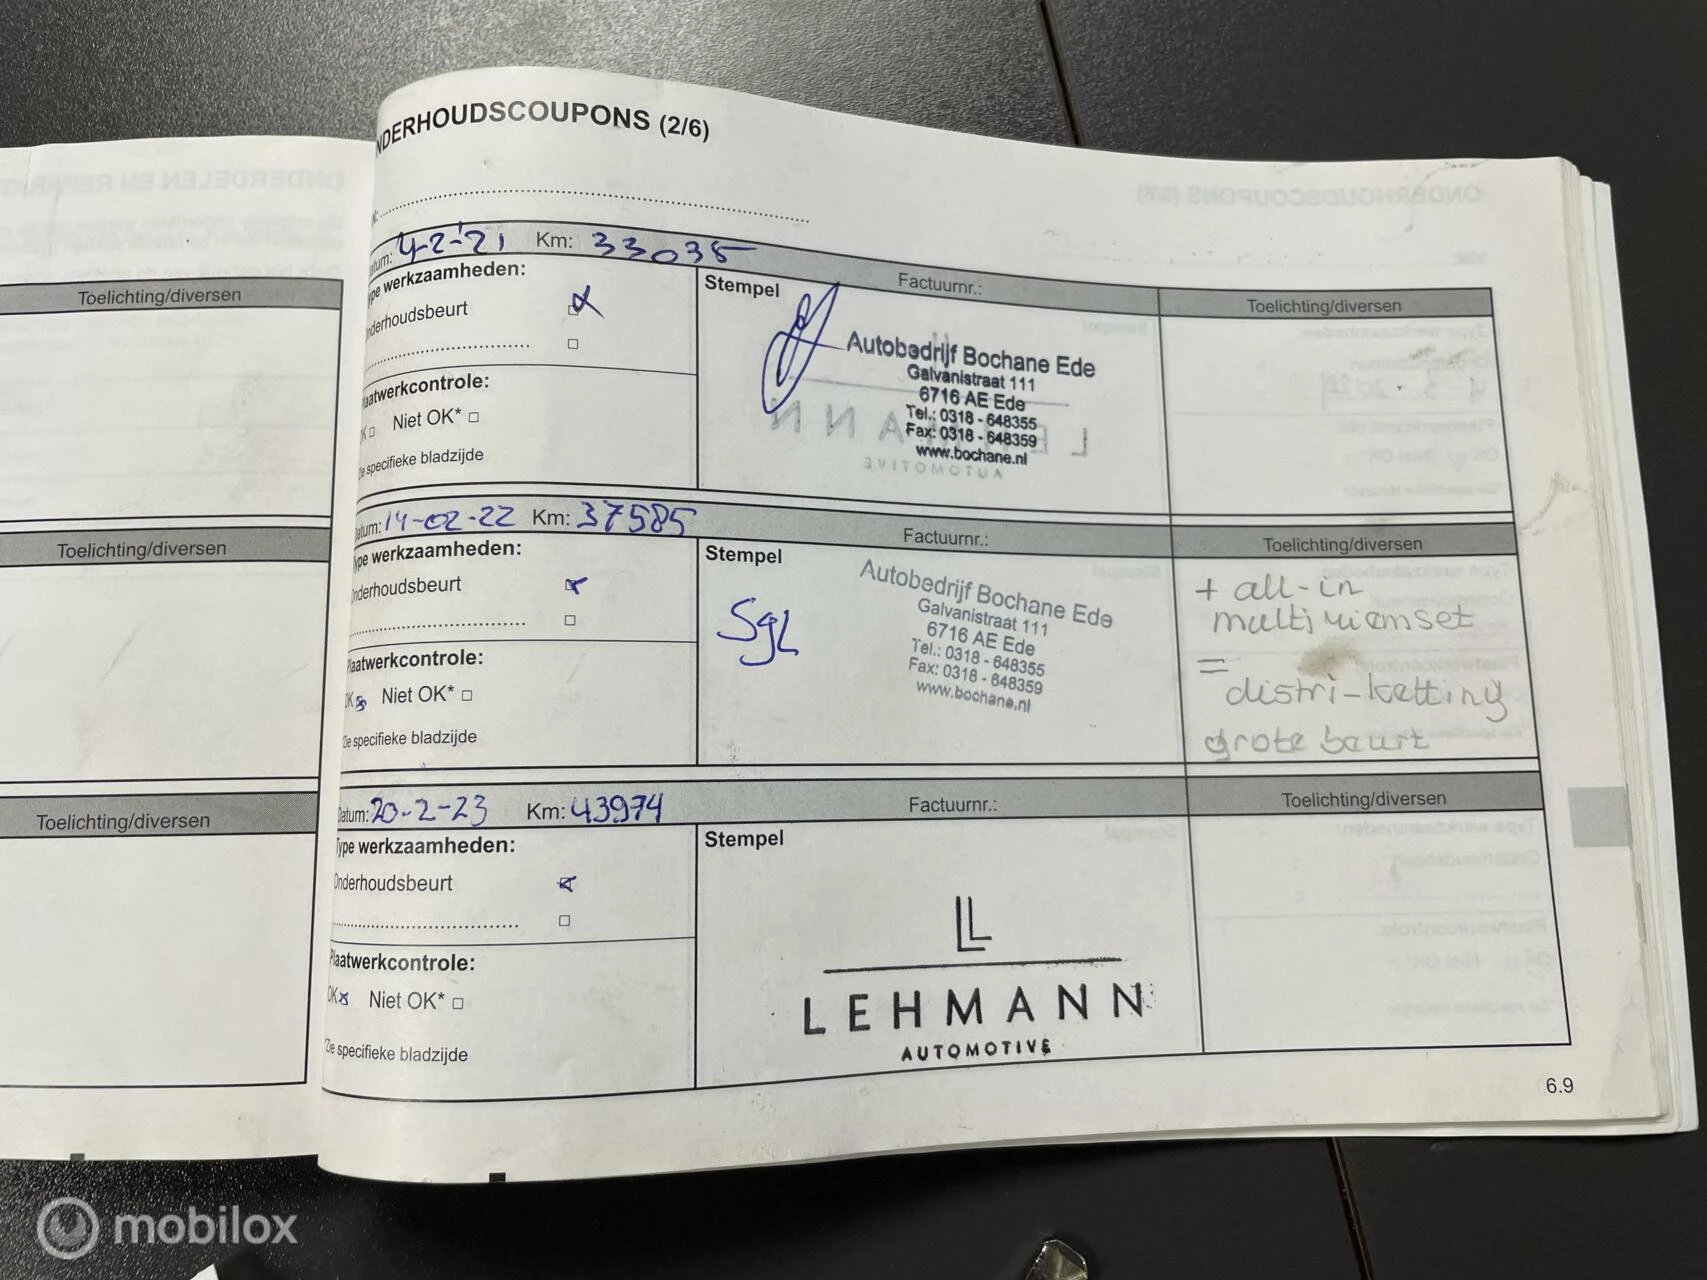 NDERHOUDSCOUPONS (2/6)
Toelichting/diversen
Toelichting/diversen
Toelichting/diversen
N:
atum: 4-2-'21 Km: 33035
Factuurnr.:
Toelichting/diversen
ype werkzaamheden:
nderhoudsbeurt
laatwerkcontrole:
K Niet OK*
ie specifieke bladzijde
Stempel
Autobedrijf Bochane Ede
Galvanistraat 111
6716 AE Ede
Tel.: 0318 - 648355
Fax: 0318 - 648359
www.bochane.nl
atum: 14-02-22 Km: 37585
Factuurnr.:
Toelichting/diversen
ype werkzaamheden:
nderhoudsbeurt
laatwerkcontrole:
OK Niet OK*
Zie specifieke bladzijde
Stempel
Sgl
Autobedrijf Bochane Ede
Galvanistraat 111
6716 AE Ede
Tel.: 0318 - 648355
Fax: 0318 - 648359
www.bochane.nl
+ all-in
multiriemset
=
distri-ketting
grote beurt
Datum: 20-2-23 Km: 43974
Factuurnr.:
Toelichting/diversen
Type werkzaamheden:
Onderhoudsbeurt
Plaatwerkcontrole:
OK Niet OK*
*Zie specifieke bladzijde
Stempel
LL
LEHMANN
AUTOMOTIVE
6.9
mobilox